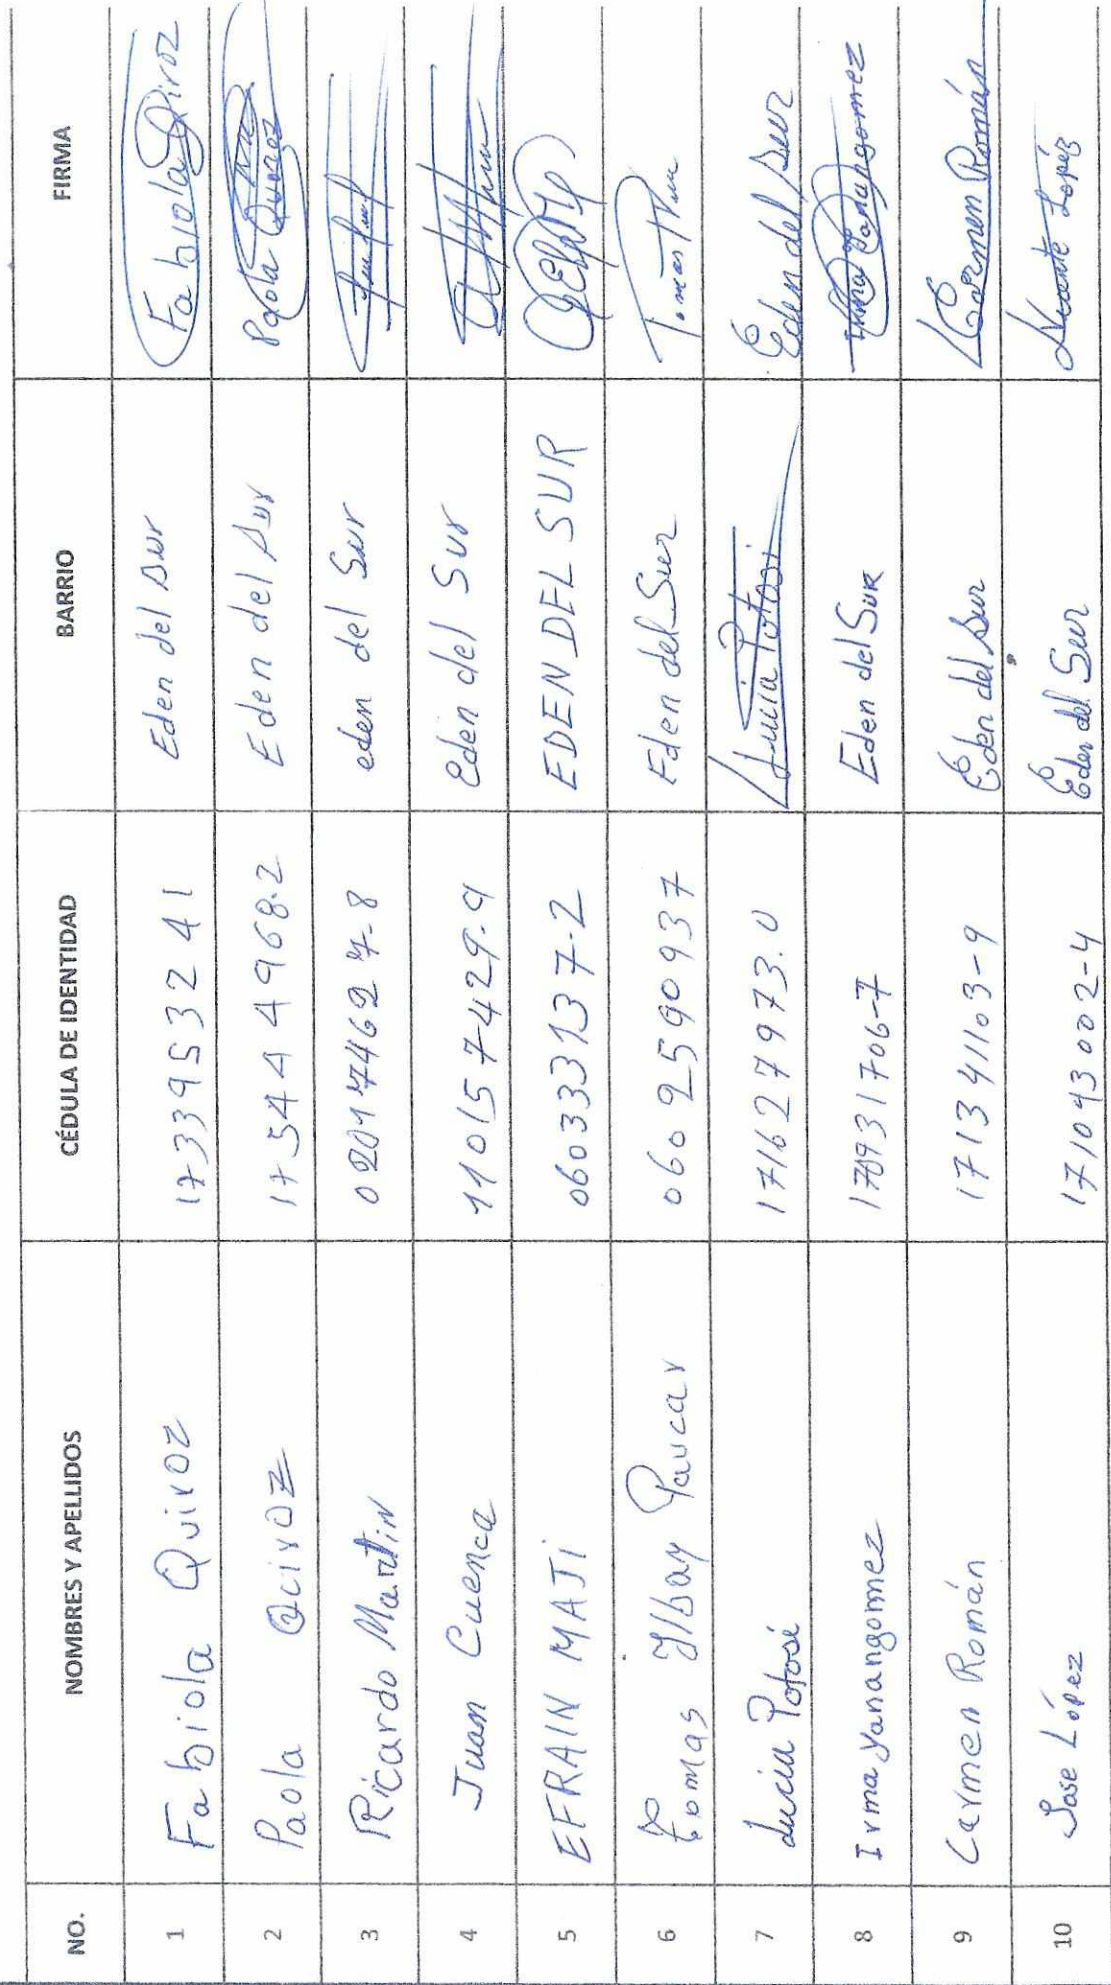 NO. NOMBRES Y APELLIDOS CÉDULA DE IDENTIDAD BARRIO FIRMA
1 Fabiola Quiroz 1733953241 Eden del Sur Fabiola Quiroz
2 Paola Qciroz 175444968-2 Eden del Sur Paola Quiroz
3 Ricardo Martin 020174627-8 eden del Sur
4 Juan Cuenca 110157429-9 Eden del Sur
5 EFRAIN MAJI 060333137-2 EDEN DEL SUR
6 Tomas Ylbay Paucar 0602590937 Eden del Sur Tomas
7 Lucia Potosí 171627973.0 Lucia Potosi Eden del Sur
8 Irma Yanangomez 170931706-7 Eden del SUR Irma Yanangomez
9 Carmen Román 171341103-9 Eden del Sur Carmen Román
10 Jose López 171093002-4 Eden del Sur López